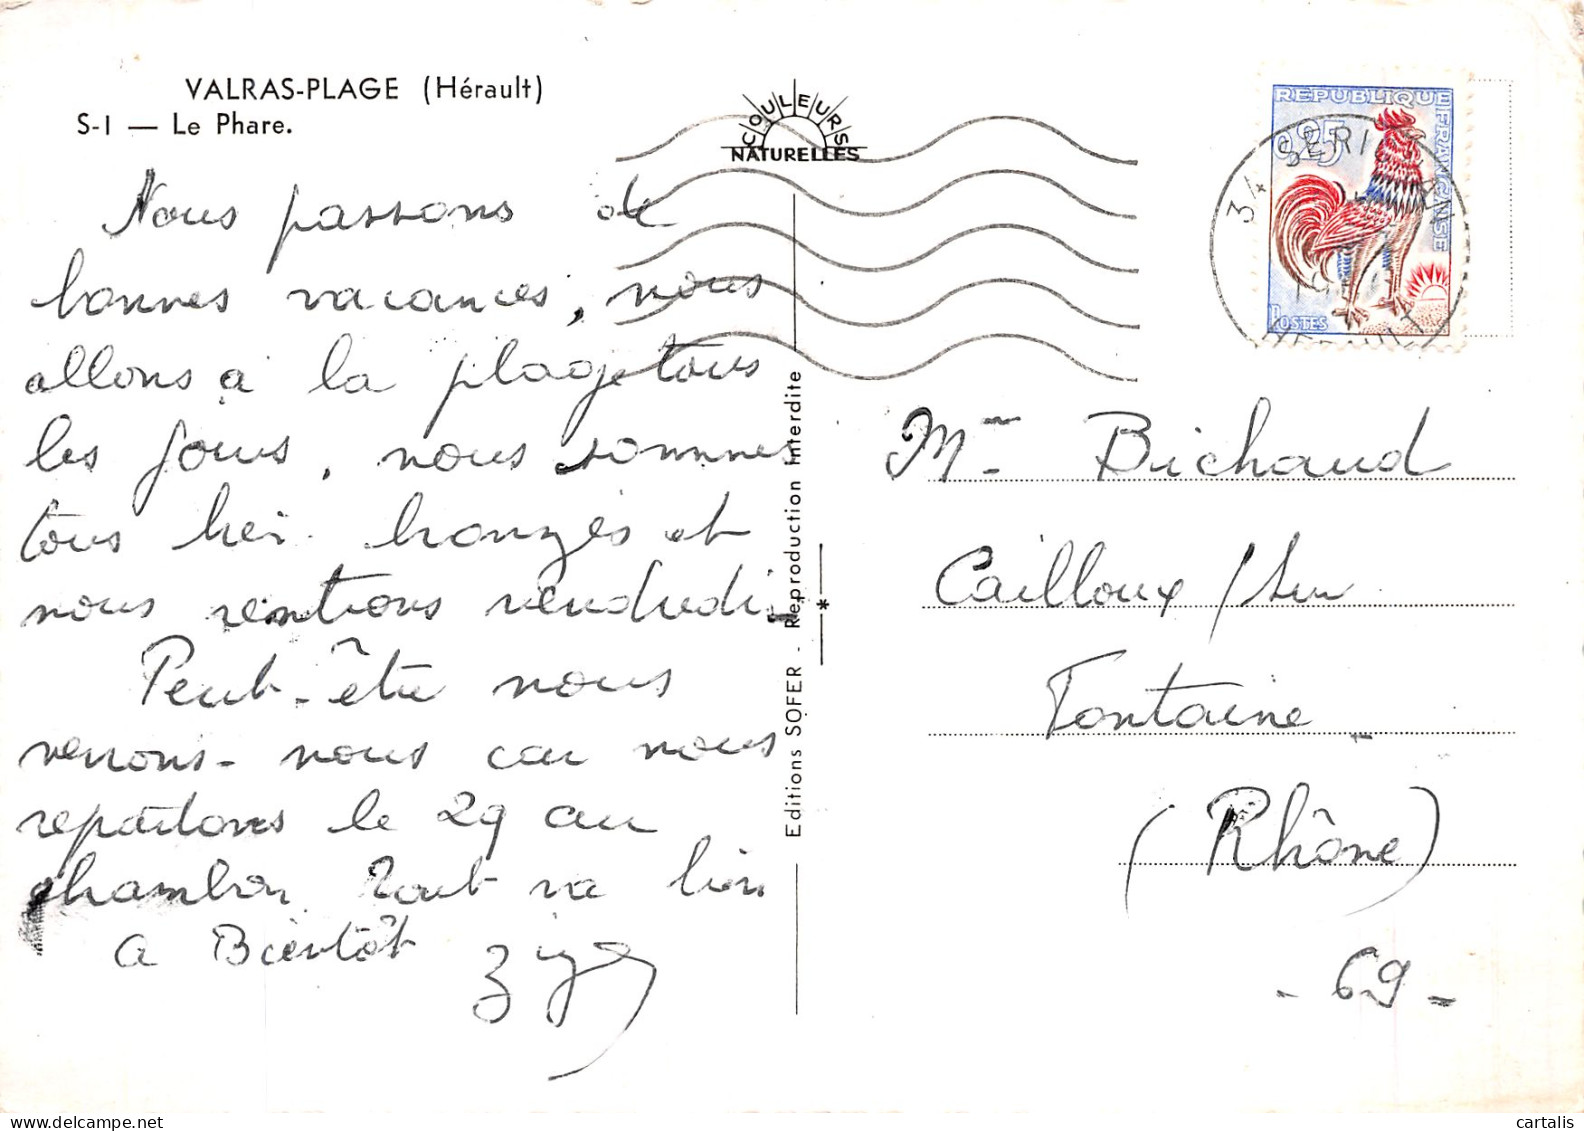 VALRAS-PLAGE (Hérault)
S-I — Le Phare.
COULEURS
NATURELLES
Nous passons de
bonnes vacances, nous
allons à la plage tous
les jours, nous sommes
tous bronzés et
nous rentrons vendredi.
Peut-être nous
verrons-nous car nous
repartons le 29 au
chambon Tout va bien
A Bientôt
Editions SOFER - Reproduction Interdite
*
REPUBLIQUE FRANÇAISE
0,25
POSTES
34 SERIGNAN
HERAULT
Mme Bichaud
Cailloux / Sur
Fontaine
(Rhône)
- 69 -
cartalis